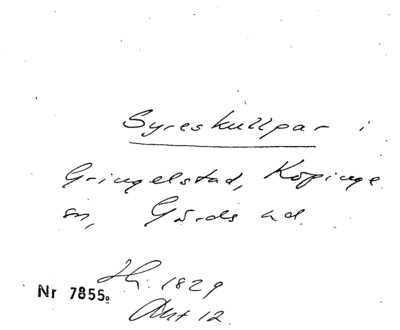 Syreskullpar i
Gringelstad, Köpinge
sn, Gärds hd.
1829
Nr 7855.
Akt 12.